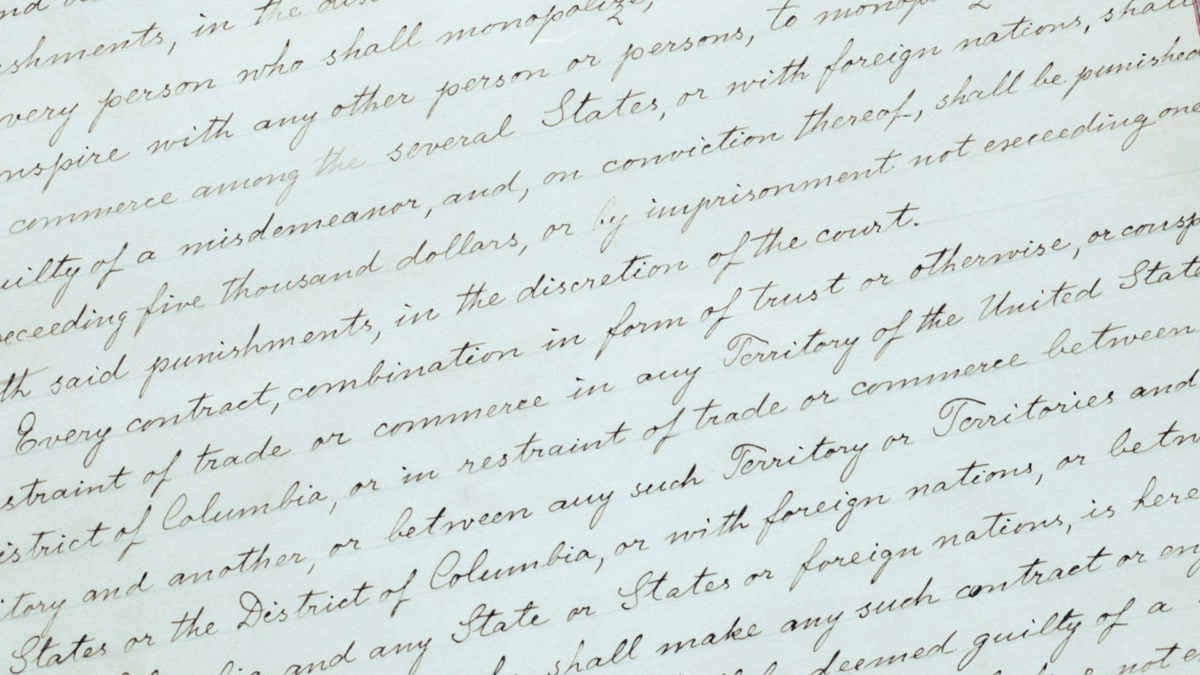 shments, in the dis
very person who shall monopolize,
nspire with any other person or persons, to monop
commerce among the several States, or with foreign nations, shall
uilty of a misdemeanor, and, on conviction thereof, shall be punished
xceeding five thousand dollars, or by imprisonment not exceeding one
th said punishments, in the discretion of the court.
Every contract, combination in form of trust or otherwise, or consp
straint of trade or commerce in any Territory of the United State
istrict of Columbia, or in restraint of trade or commerce between
itory and another, or between any such Territory or Territories and
States or the District of Columbia, or with foreign nations, or betw
bia and any State or States or foreign nations, is here
shall make any such contract or en
deemed guilty of a
not e